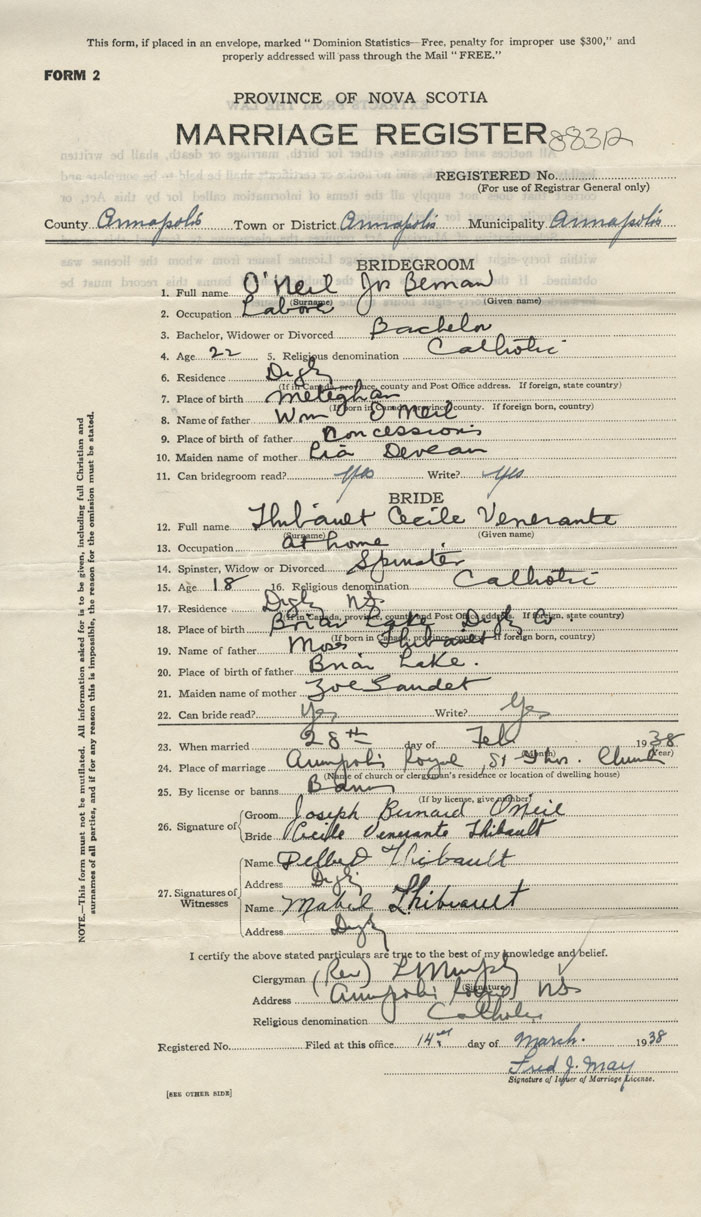 This form, if placed in an envelope, marked "Dominion Statistics—Free, penalty for improper use $300," and
properly addressed will pass through the Mail "FREE."
FORM 2
PROVINCE OF NOVA SCOTIA
MARRIAGE REGISTER 88312
REGISTERED No.
(For use of Registrar General only)
County Annapolis Town or District Annapolis Municipality Annapolis
BRIDEGROOM
1. Full name O'Neil Jos Bernard
(Surname) (Given name)
2. Occupation Labore
3. Bachelor, Widower or Divorced Bachelor
4. Age 22 5. Religious denomination Catholic
6. Residence Digby
(If in Canada, province, county and Post Office address. If foreign, state country)
7. Place of birth Meteghan
(If born in Canada, province, county. If foreign born, country)
8. Name of father Wm O'Neil
9. Place of birth of father Concessions
10. Maiden name of mother Deveau
11. Can bridegroom read? yes Write? yes
BRIDE
12. Full name Thibault Cecile Venerante
(Surname) (Given name)
13. Occupation at home
14. Spinster, Widow or Divorced Spinster
15. Age 18 16. Religious denomination Catholic
17. Residence Digby NS
(If in Canada, province, county and Post Office address. If foreign, state country)
18. Place of birth Briar Lake Digby Co.
(If born in Canada, province, county. If foreign born, country)
19. Name of father Moses Thibault
20. Place of birth of father Briar Lake.
21. Maiden name of mother Zoe Saudet
22. Can bride read? Yes Write? Yes
23. When married 28th day of Feb 1938
(Month) (Year)
24. Place of marriage Annapolis Royal, St Thos. Church
(Name of church or clergyman's residence or location of dwelling house)
25. By license or banns Banns
(If by license, give number)
26. Signature of Groom Joseph Bernard O'Neil
Bride Cecile Venerante Thibault
27. Signatures of Witnesses
Name Thibault
Address Digby
Name Mabel Thibault
Address Digby
I certify the above stated particulars are true to the best of my knowledge and belief.
Clergyman (Rev) L Murphy
(Signature)
Address Annapolis Royal NS
Religious denomination Catholic
Registered No. Filed at this office 14 day of March. 1938
Fred J. May
Signature of Issuer of Marriage License.
[SEE OTHER SIDE]
NOTE.—This form must not be mutilated. All information asked for is to be given, including full Christian and
surnames of all parties, and if for any reason this is impossible, the reason for the omission must be stated.